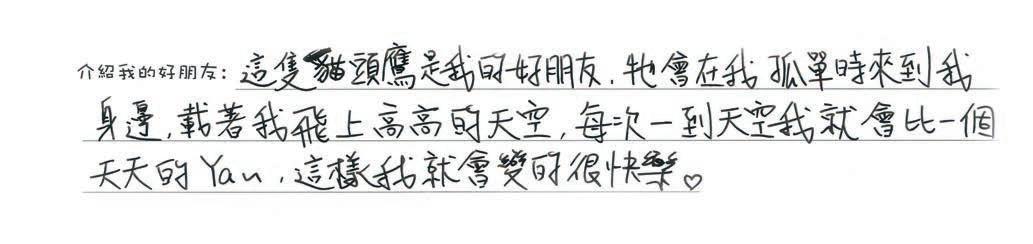 介紹我的好朋友：這隻貓頭鷹是我的好朋友，牠會在我孤單時來到我
身邊，載著我飛上高高的天空，每次一到天空我就會比一個
天天的Yau，這樣我就會變的很快樂♡